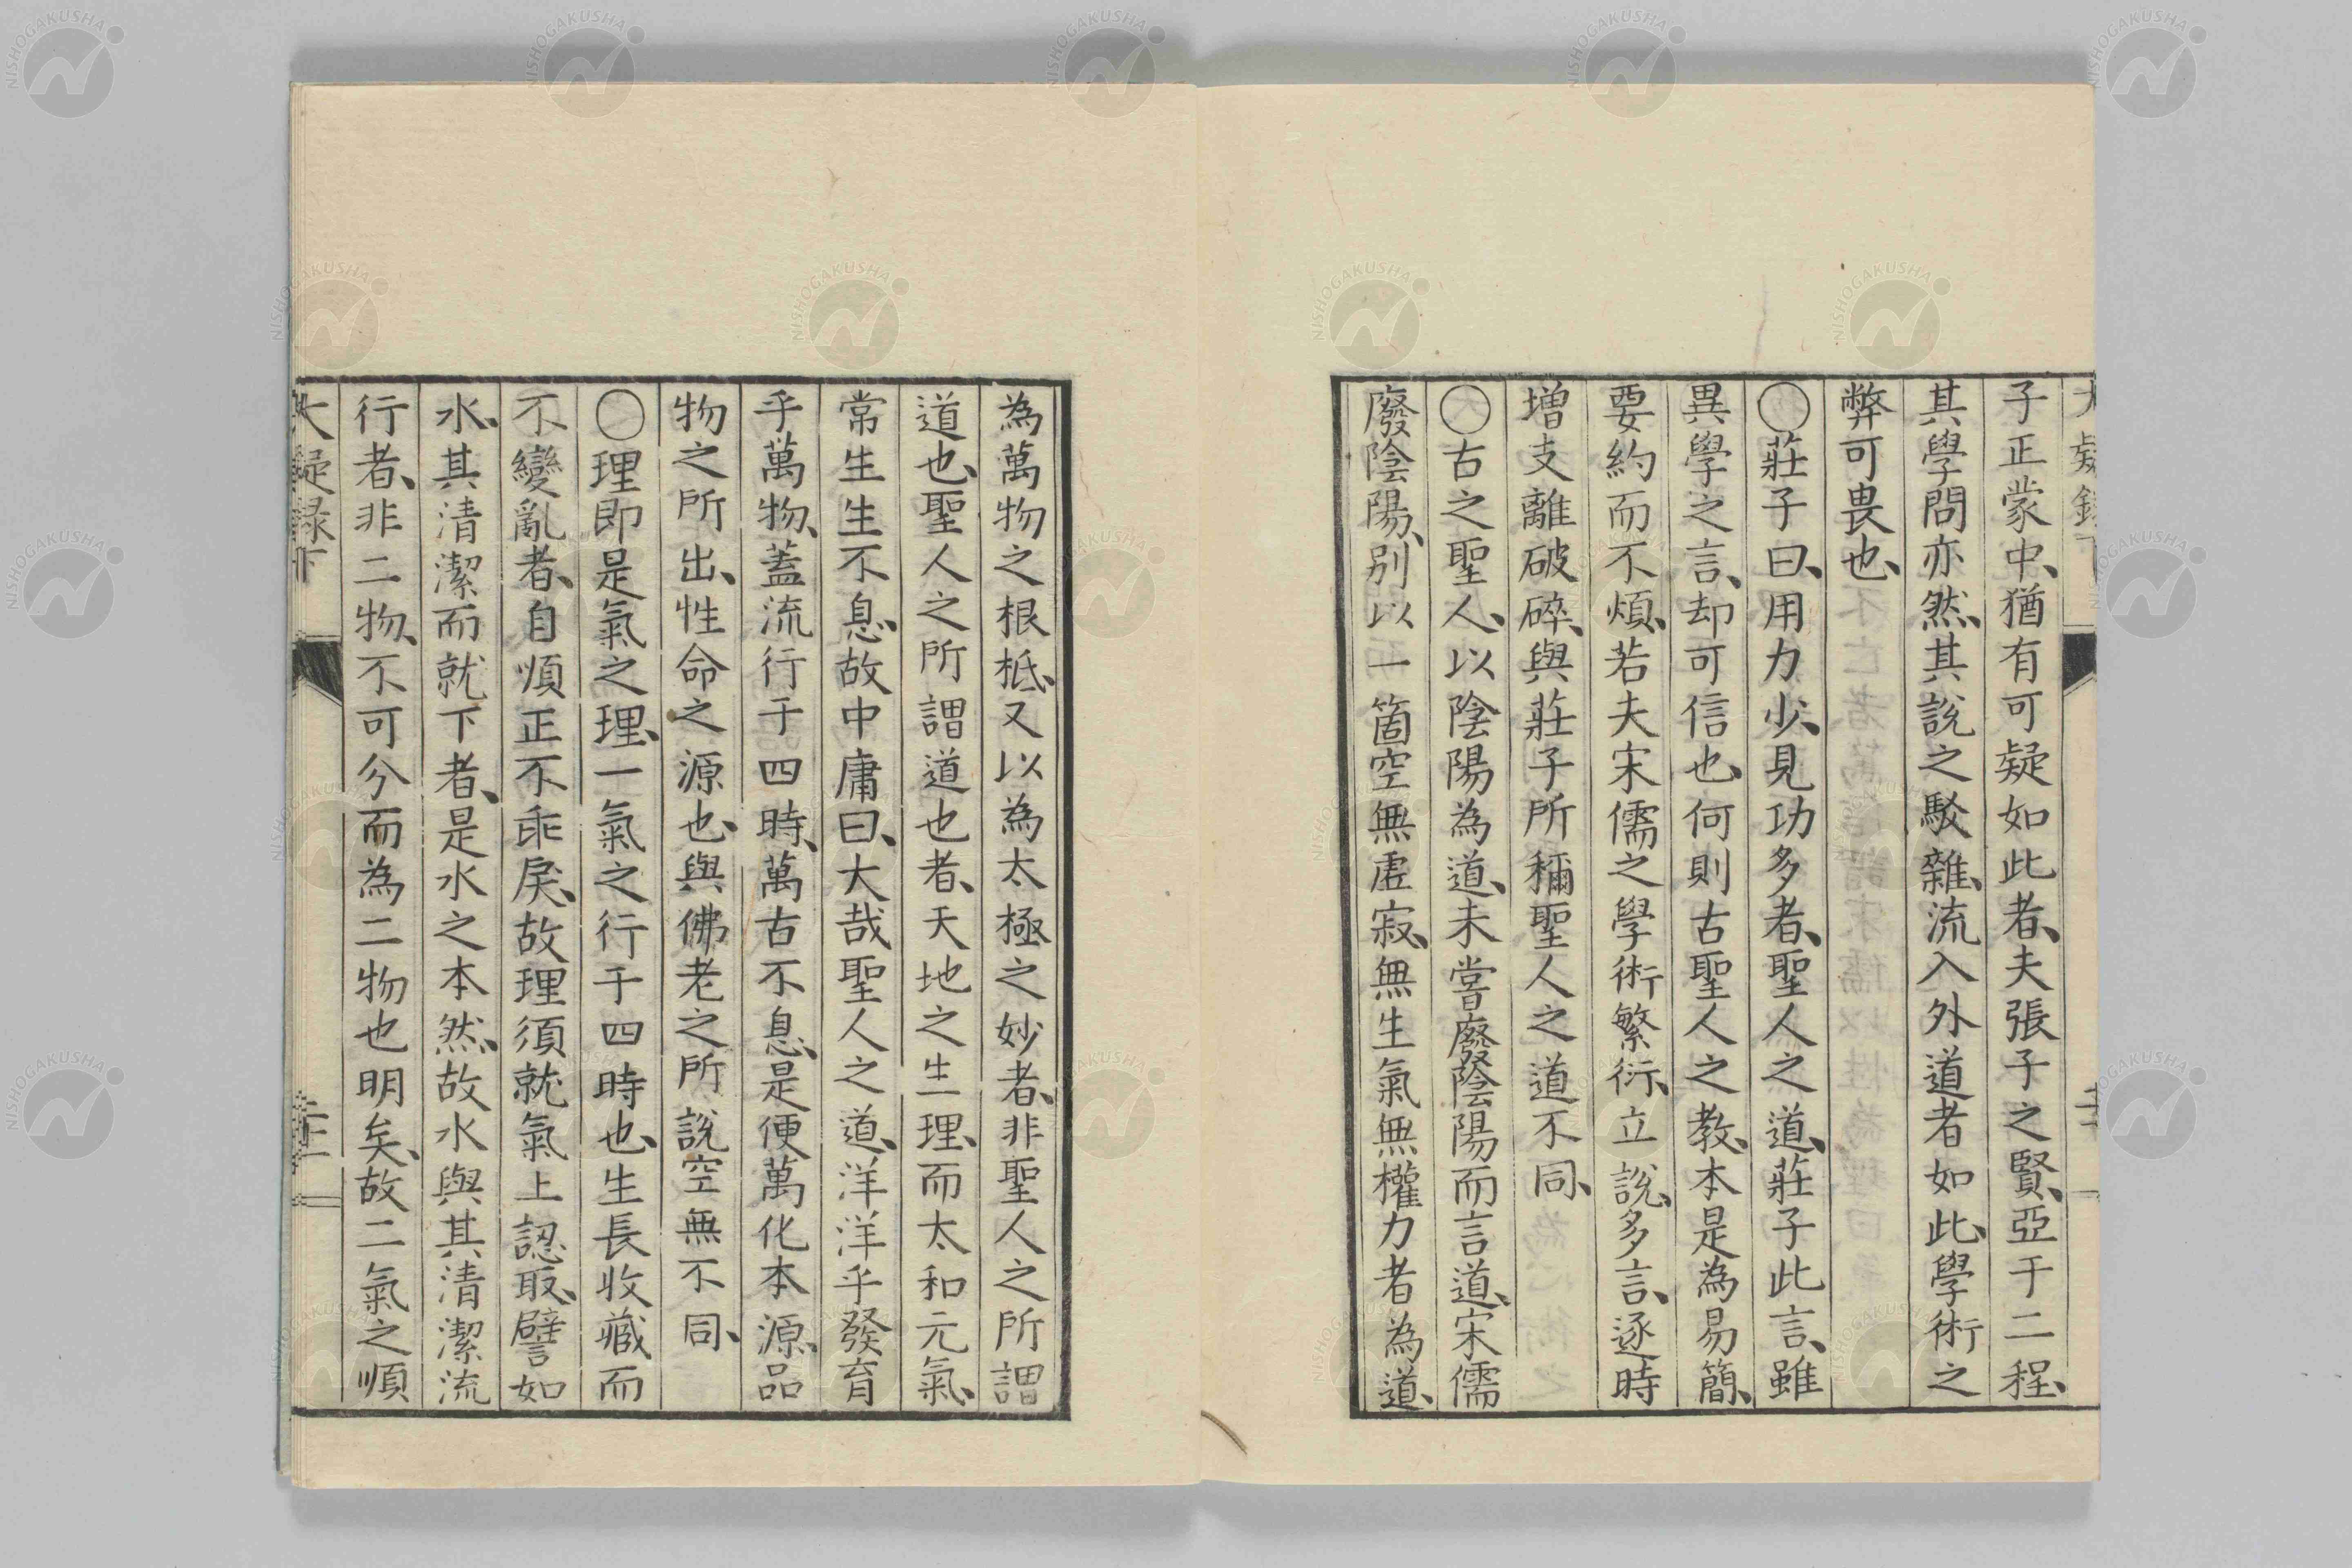 子正蒙中、猶有可疑如此者、夫張子之賢、亞于二程、
其學問亦然、其說之駁雜、流入外道者如此、學術之
弊可畏也、
○莊子曰、用力少、見功多者、聖人之道、莊子此言、雖
異學之言、却可信也、何則古聖人之教、本是為易簡、
要約而不煩、若夫宋儒之學術繁衍、立說、多言、逐時
增支離破碎、與莊子所稱聖人之道不同、
○古之聖人、以陰陽為道、未嘗廢陰陽而言道、宋儒
廢陰陽、別以一箇空無虛寂、無生氣無權力者為道、
為萬物之根柢、又以為太極之妙者、非聖人之所謂
道也、聖人之所謂道也者、天地之生理、而太和元氣、
常生生不息、故中庸曰、大哉聖人之道、洋洋乎發育
乎萬物、蓋流行于四時、萬古不息、是便萬化本源、品
物之所出、性命之源也、與佛老之所說空無不同、
○理即是氣之理、一氣之行于四時也、生長收藏而
不變亂者、自順正不乖戾、故理須就氣上認取、譬如
水、其清潔而就下者、是水之本然、故水與其清潔流
行者、非二物、不可分而為二物也明矣、故二氣之順
大疑録下
NISHOGAKUSHA